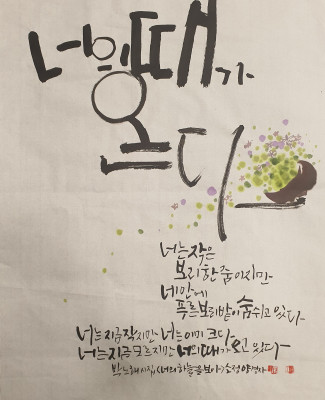 너의 때가
온다
너는 작은
보리 한 줌이지만
네 안에
푸른 보리밭이 숨쉬고 있다
너는 지금 작지만 너는 이미 크다
너는 지금 모르지만 너의 때가 오고 있다
박노해 시집 <너의 하늘을 보아>